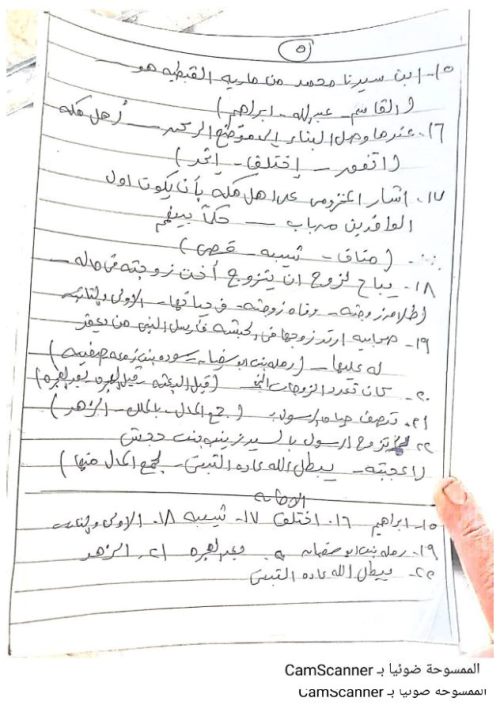 ٥
١٥- ابن سيرنا محمد من ماريه القبطيه هو ـــ
(القاسم - عبدالله - ابراهيم)
١٦. عندما وصل البناء إلى موضع الركن ـــ أهل مكه
(اتفق - إختلف - إتحد)
١٧. اشار المخزومى على اهل مكه بأن يكون اول
الوافدين من باب ـــ حكماً بينهم
(مناف - شيبه - قصى)
١٨. يباح لزوج ان يتزوج أخت زوجته فى حاله ـــ
(طلاق زوجته - وفاه زوجته - فى حياتها - الاولى والثانيه
١٩- صحابيه ارتد زوجها فى الحبشه فأرسل النبى من يعقد
له عليها - (رمله بنت ابو سفيان - سوده بنت زمعه - صفيه)
٢٠- كان تعدد الزوجات (قبل البعثه - قبل الهجره - بعد الهجره)
٢١. تتصف حياه الرسول بـ (جمع المال - بالملل - الزهد)
٢٢- تزوج الرسول بالسيده زينب بنت جحش
(لاعجبته - يبطل الله عاده التبنى - لجمع المال منها)
الاجابه
١٥- ابراهيم ١٦. اختلف ١٧- شيبه ١٨. الاولى والثانيه
١٩. رمله بنت ابو سفيان ٢٠ بعد الهجره ٢١. الزهد
٢٢- يبطل الله عاده التبنى
الممسوحة ضوئيا بـ CamScanner
الممسوحة ضوئيا بـ CamScanner